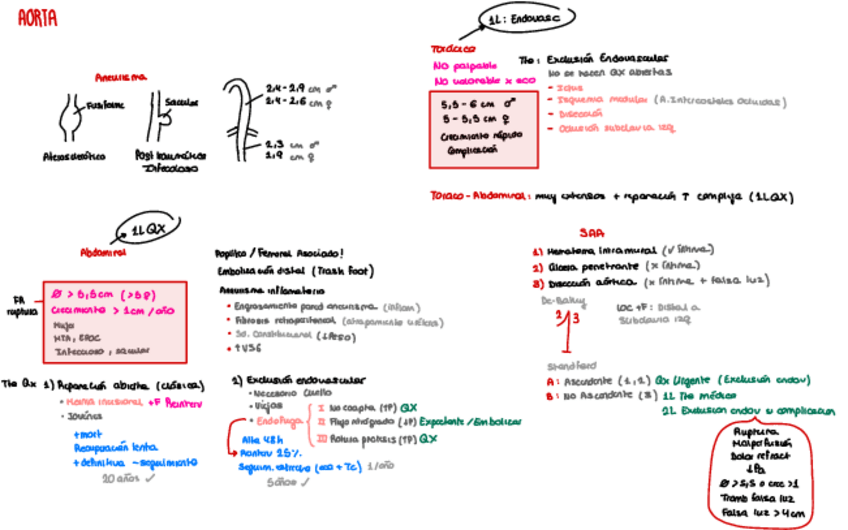 AORTA
Aneurisma
Fusiforme
Sacular
Aterosclerótico
Postraumático
Infeccioso
2,4 - 2,9 cm ♂
2,4 - 2,6 cm ♀
2,3 cm ♂
1,9 cm ♀
1L: Endovasc
Torácico
No palpable
No valorable x eco
5,5 - 6 cm ♂
5 - 5,5 cm ♀
Crecimiento rápido
Complicación
Tto: Exclusión Endovascular
No se hacen QX abiertas
- Ictus
- Isquemia medular (A. Intercostales ocluidas)
- Disección
- Oclusión subclavia izq
Toraco-Abdominal: muy extensos + reparación ↑ compleja (1L QX)
1L QX
Abdominal
FR
ruptura
Ø > 5,5cm (>5♀)
Crecimiento > 1cm / año
Mujer
HTA, EPOC
Infeccioso, sacular
Poplíteo / Femoral Asociado!
Embolización distal (Trash foot)
Aneurisma inflamatorio
• Engrosamiento pared aneurisma (inflam)
• Fibrosis retroperitoneal (atrapamiento uréteres)
• Sd. Constitucional (↓Peso)
• ↑VSG
Tto Qx 1) Reparación abierta (clásica)
• Hernia incisional +F Reinterv
• Jóvenes
+mort
Recuperación lenta
+ definitiva - seguimiento
20 años ✓
2) Exclusión endovascular
• Necesario Cuello
• Viejos
• Endofuga
I No coapta (↑P) QX
II Flujo retrógrado (↓P) Expectante / Embolizar
III Rotura prótesis (↑P) QX
Alta 48h
Reinterv 25%
Seguim. estrecho (eco + TC) 1/año
5 años ✓
SAA
1) Hematoma intramural (✓ íntima)
2) Úlcera penetrante (x íntima)
3) Disección aórtica (x íntima + falsa luz)
De-Bakey
2 / 3
1
LOC +F: Distal a
Subclavia izq
Standford
A: Ascendente (1,2) Qx Urgente (Exclusión endov)
B: No Ascendente (3) 1L Tto médico
2L Exclusion endov si complicacion
Ruptura
Malperfusión
Dolor refract
↓PA
Ø > 5,5 o crec > 1
Tromb falsa luz
Falsa luz > 4cm